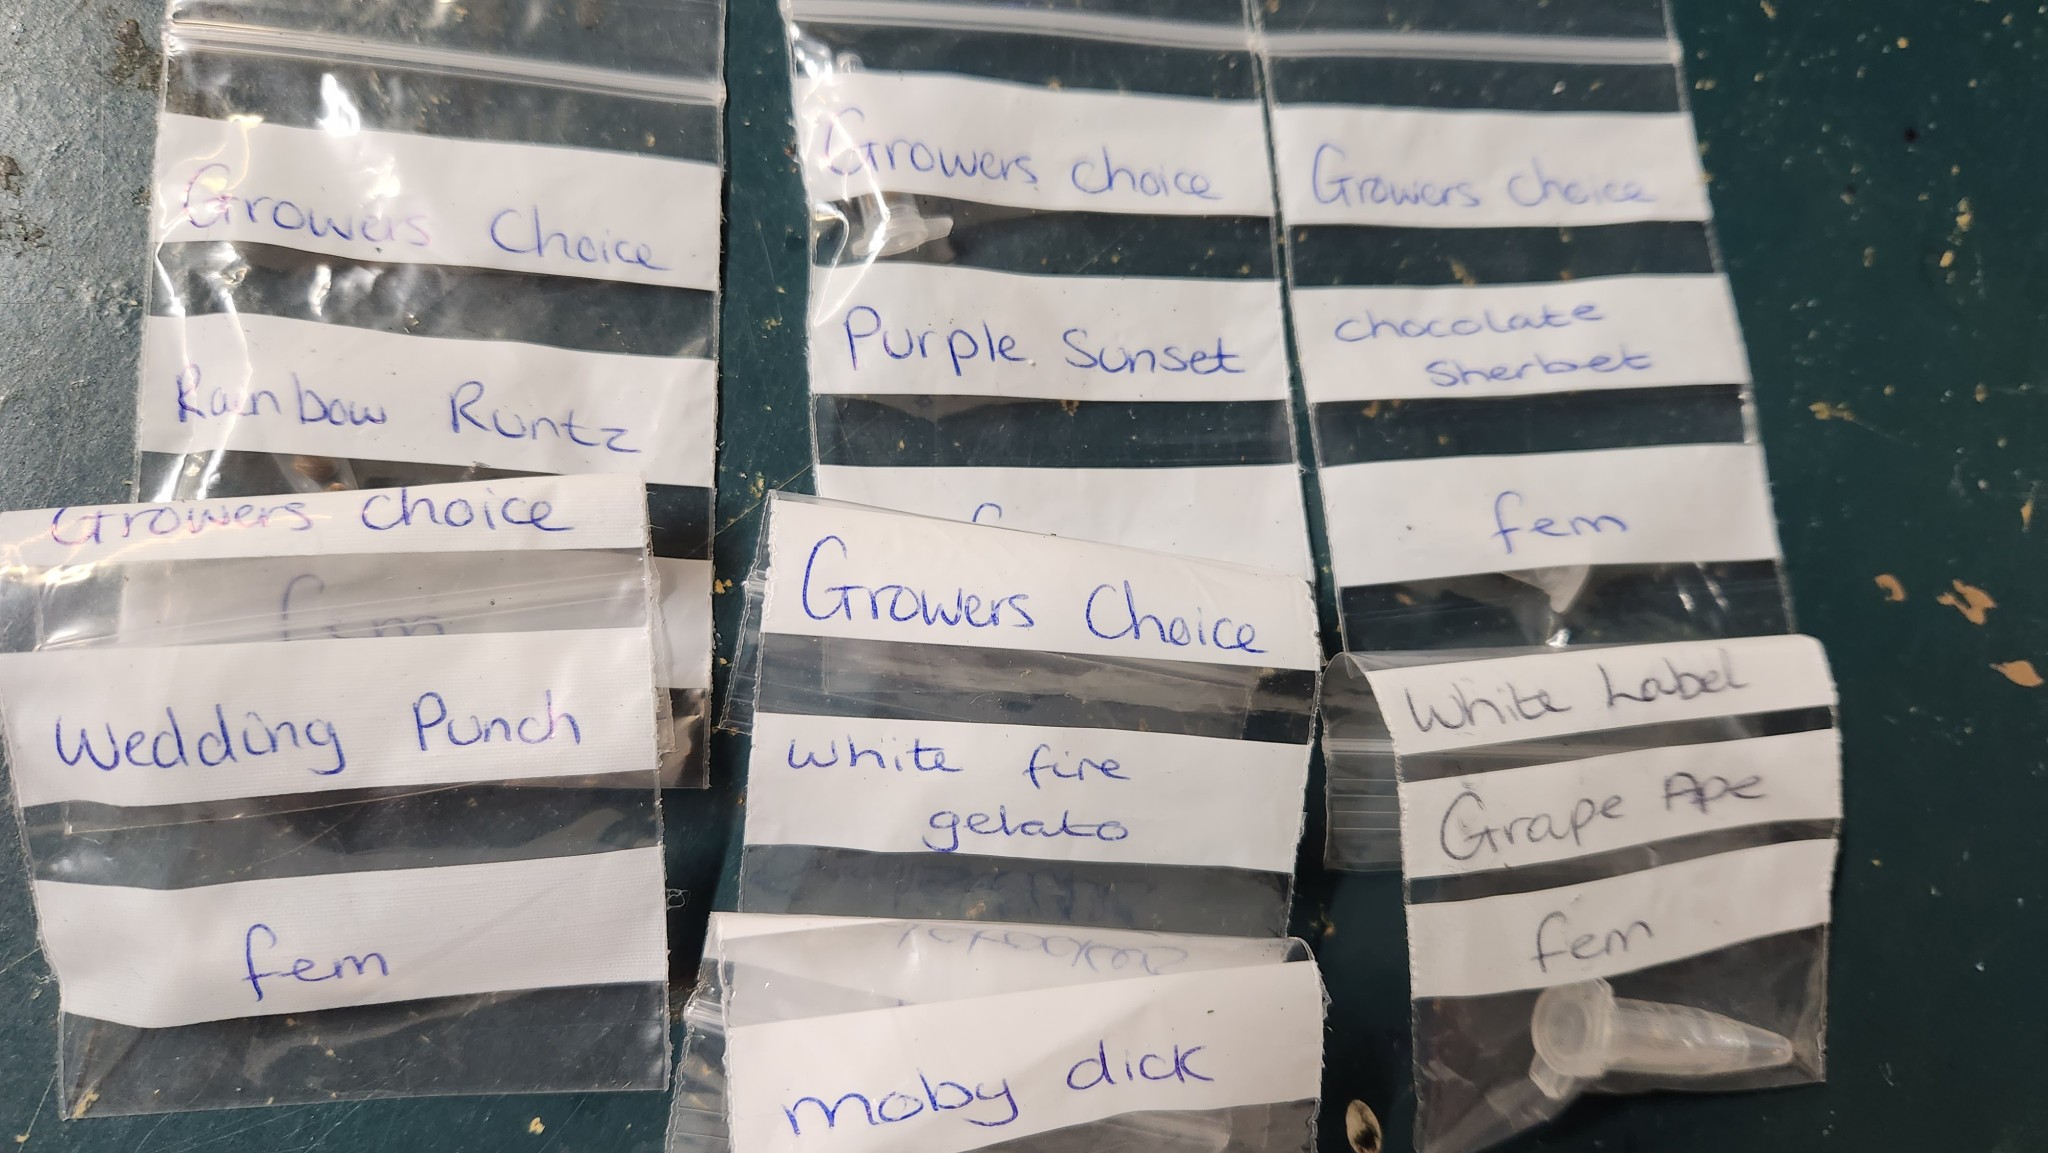 Growers Choice
Rainbow Runtz
fem
Growers choice
Wedding Punch
fem
Growers choice
Purple Sunset
Growers Choice
White fire
gelato
moby dick
Growers choice
chocolate
sherbet
fem
White Label
Grape Ape
fem